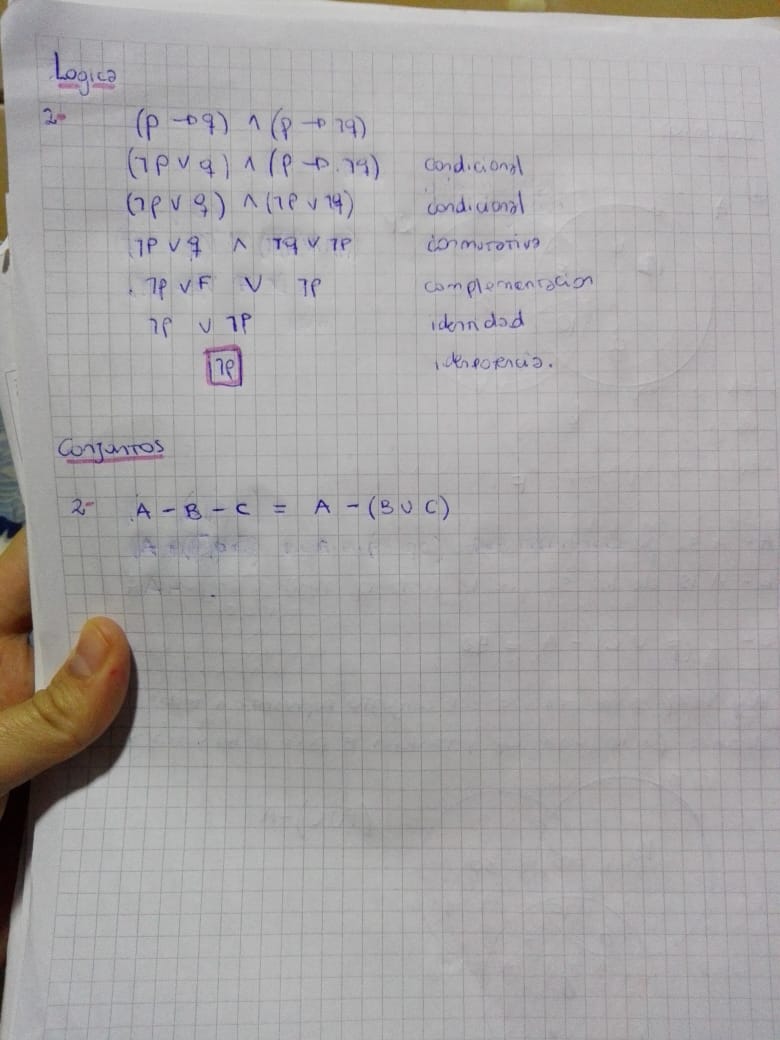 Logica
2- (p → q) ∧ (p → ¬q)
(¬p ∨ q) ∧ (p → ¬q) condicional
(¬p ∨ q) ∧ (¬p ∨ ¬q) condicional
¬p ∨ q ∧ ¬q ∨ ¬p conmutativa
¬p ∨ F ∨ ¬p complementacion
¬p ∨ ¬p identidad
¬p idempotencia.
Conjuntos
2- A - B - C = A - (B ∪ C)